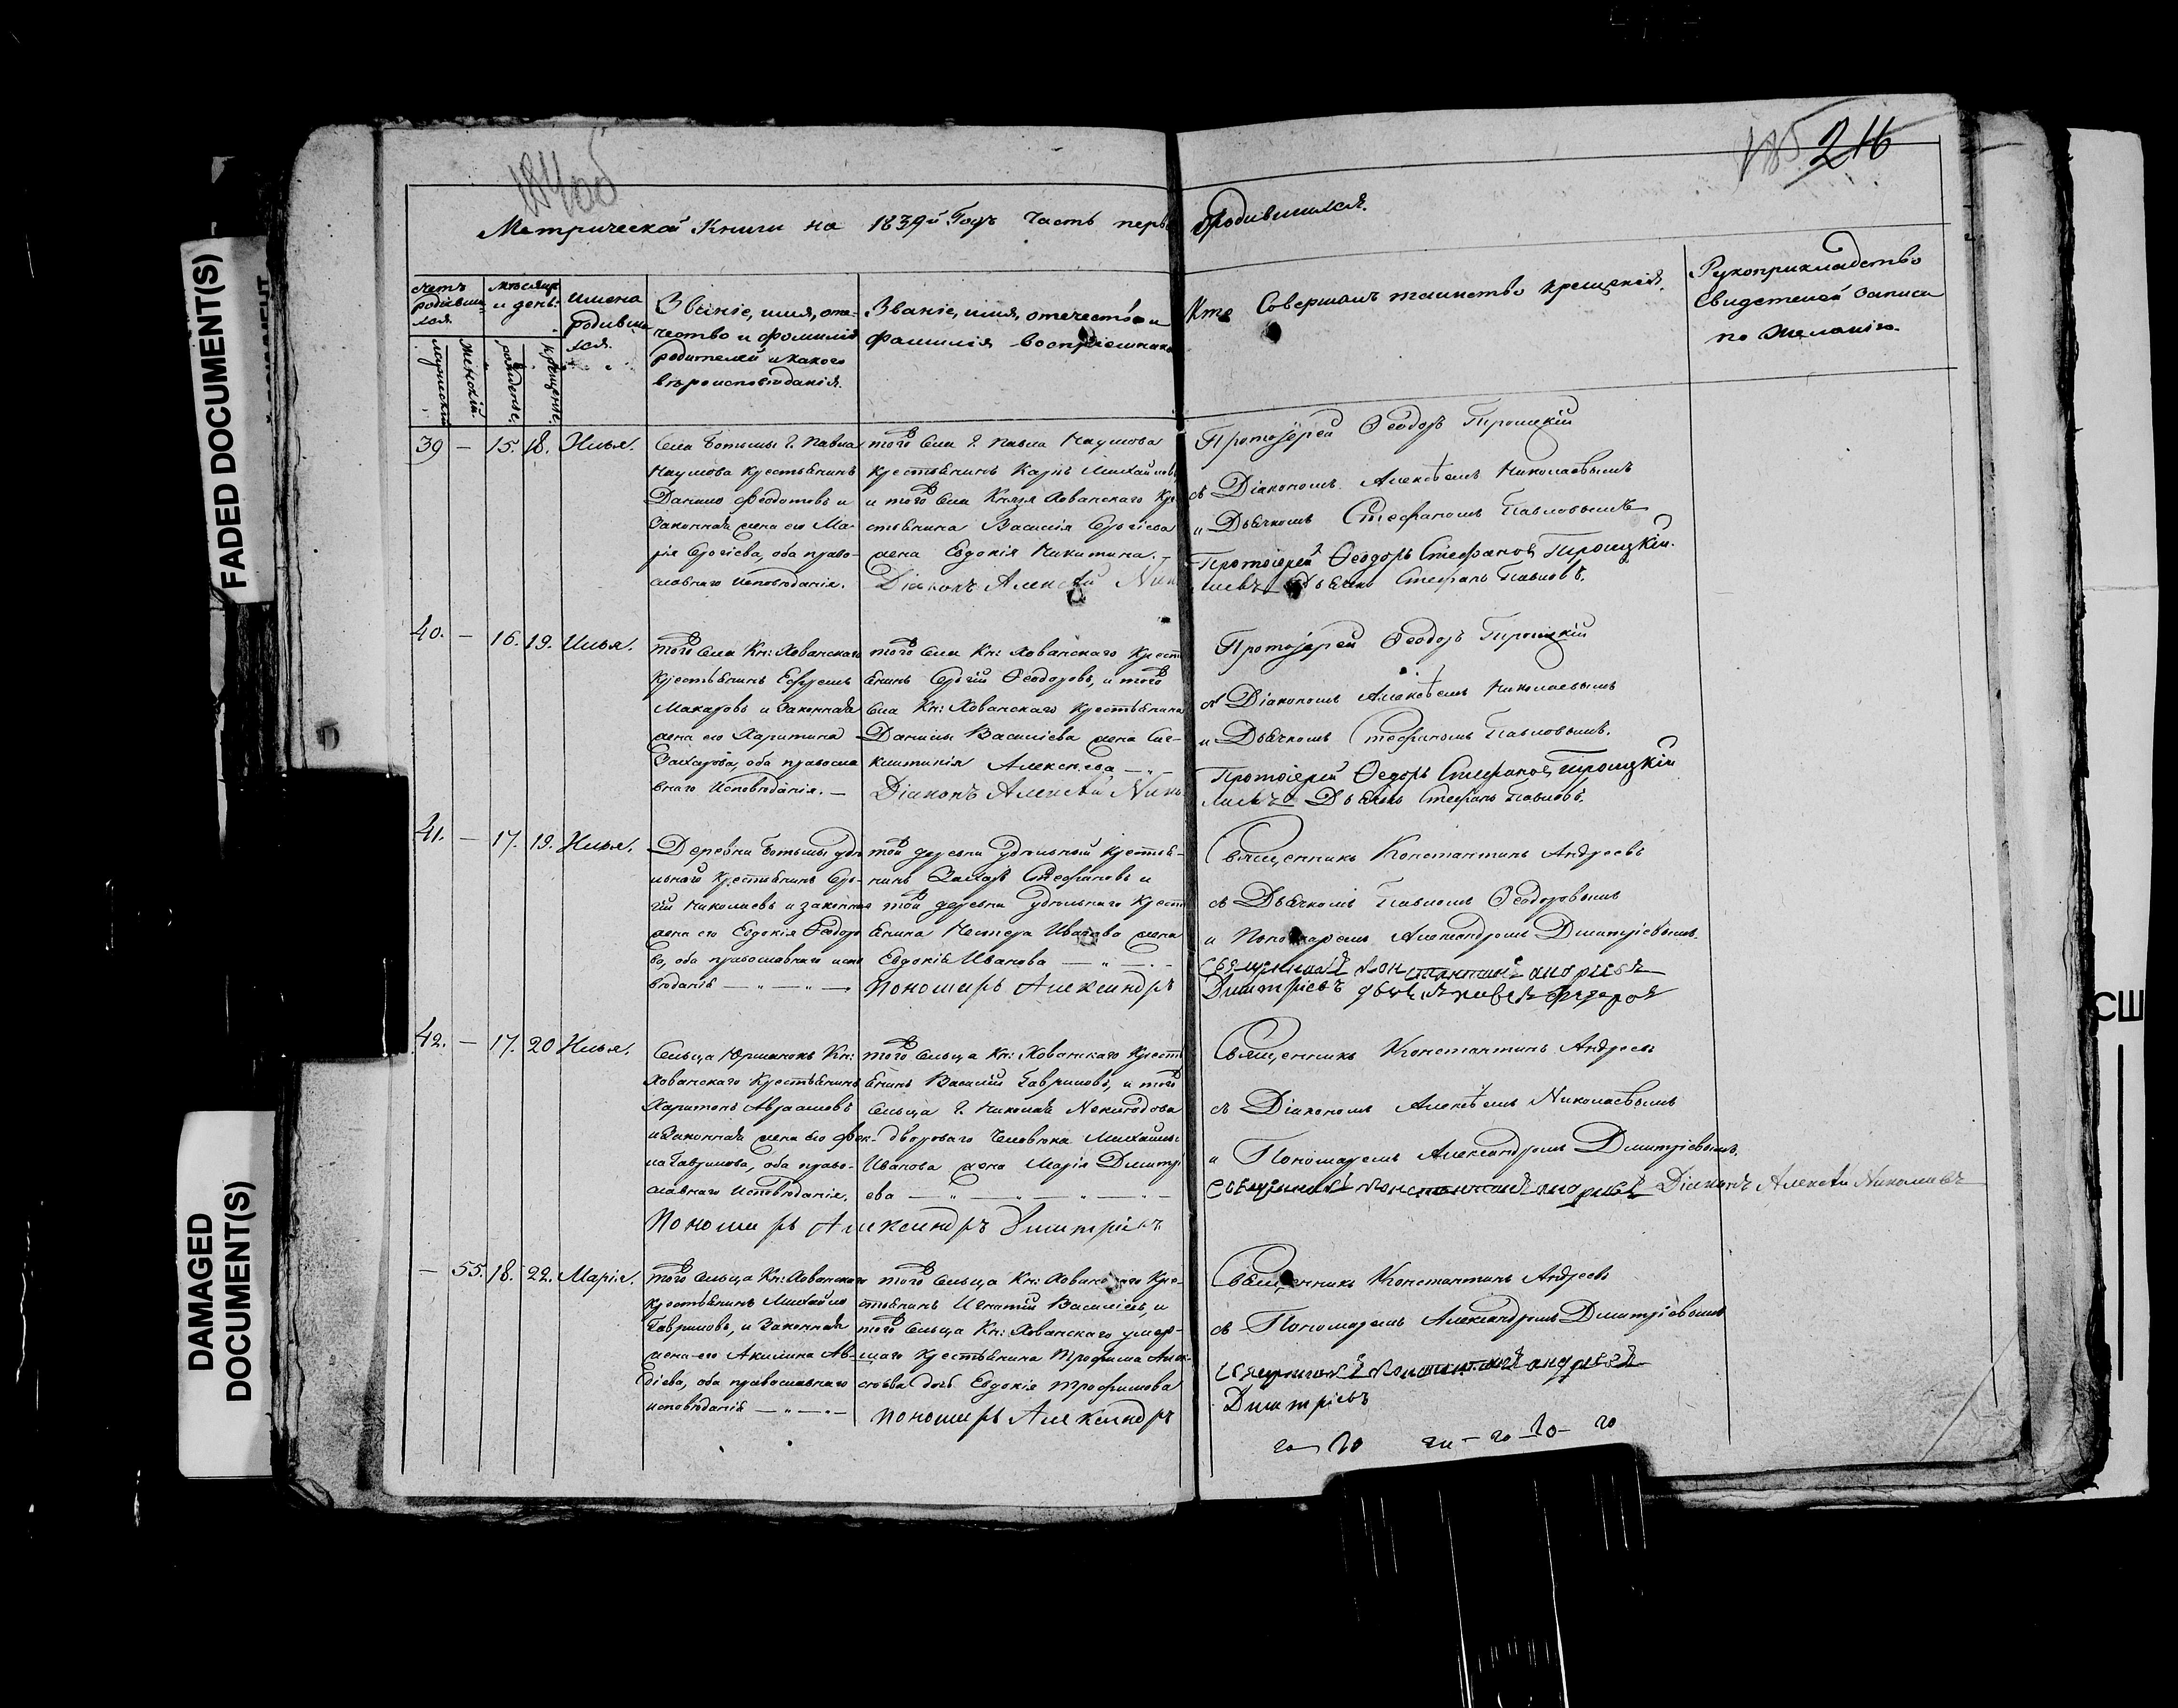 184об
185 216
Метрической Книги на 1839й Годъ Часть перв
о родившихся.
счетъ родившихся
мѣсяцъ и день.
имена родившихся.
Званіе, имя, отечество и фамилія родителей и какого вѣроисповѣданія.
Званіе, имя, отечество и фамилія воспріемниковъ
Кто Совершалъ таинство крещенія.
Рукоприкладство Свидетелей Записи по Желанію.
мужескій
женскій.
рожденіе.
крещеніе.
39 — 15. 18. Илья.
Села Ботьмы Г. Павла
Наумова Крестьянинъ
Данило Феодотовъ и
Законная жена его Ма-
рія Сергіева, оба право-
славнаго исповѣданія.
того Села Г. Павла Наумова
Крестьянинъ Карпъ Михайловъ
и того Села Князя Хованскаго Кре
стьянина Василія Сергіева
жена Евдокія Никитина. –
Діаконъ Алексѣй Нико
Протоіерей Феодоръ Троицкій
съ Діакономъ Алексѣемъ Николаевымъ
и Дьячкомъ Стефаномъ Павловымъ
Протоіерей Феодоръ Стефановъ Троицкій.
лаевъ Дьячекъ Стефанъ Павловъ.
40. — 16. 19. Илья.
того Села Кн: Хованскаго
Крестьянинъ Ефремъ
Макаровъ и Законная
жена его Харитина
Захарова, оба правосла
внаго исповѣданія. —
того Села Кн: Хованскаго Крест
янинъ Сергій Феодоровъ, и того
Села Кн: Хованскаго Крестьянина
Данилы Василіева жена Син-
клитикія Алексѣева — „ —
Діаконъ Алексѣй Нико
Протоіерей Феодоръ Троицкій
съ Діакономъ Алексѣемъ Николаевымъ
и Дьячкомъ Стефаномъ Павловымъ.
Протоіерей Федоръ Стефановъ Троицкій
лаевъ Дьячекъ Стефанъ Павловъ.
41. — 17. 19. Илья.
Деревни Ботьмы удѣ
льнаго Крестьянинъ Сер-
гій Николаевъ и законная
жена его Евдокія Феодоро
ва, оба православнаго испо
вѣданія — „ — „ —
той деревни удѣльный Крестья-
нинъ Захаръ Стефановъ и
той деревни удѣльнаго Крест
янина Нестера Иванова жена
Евдокія Иванова — „ — . —
Пономарь Александръ
Священникъ Константинъ Андреевъ
съ Дьячкомъ Павломъ Феодоровымъ
и Пономаремъ Александромъ Дмитріевымъ.
Священникъ Константинъ Андреевъ
Димитріевъ дьячекъ Павелъ Федоровъ
42. — 17. 20 Илья.
Сельца Юрманокъ Кн:
Хованскаго Крестьянинъ
Харитонъ Авраамовъ
и Законная жена его Фек-
ла Гаврилова, оба право-
славнаго исповѣданія.
того Сельца Кн: Хованскаго Крест
янинъ Василій Гавриловъ, и того
Сельца Г. Николая
двороваго человѣка Михаилы
Иванова жена Марія Димитрі
ева — „ — „ — „ —
Пономарь Александръ Димитріевъ
Священникъ Константинъ Андреевъ
съ Діакономъ Алексѣемъ Николаевымъ
и Пономаремъ Александромъ Дмитріевымъ.
Священникъ Константинъ Андреевъ Діаконъ Алексѣй Николаевъ
— 55. 18. 22. Марія.
того Сельца Кн: Хованскаго
Крестьянинъ Михайло
Гавриловъ, и Законная
жена его Акилина Ав-
діева, оба православнаго
исповѣданія — „ — „ —
того Сельца Кн: Хованскаго Кре-
стьянинъ Игнатій Василіевъ, и
того Сельца Кн: Хованскаго умер-
шаго Крестьянина Трофима Алек
сѣева дочь Евдокія Трофимова
Пономарь Александръ
Священникъ Константинъ Андреевъ
съ Пономаремъ Александромъ Дмитріевымъ
Священникъ Константинъ Андреевъ
Димитріевъ
FADED DOCUMENT(S)
DAMAGED DOCUMENT(S)